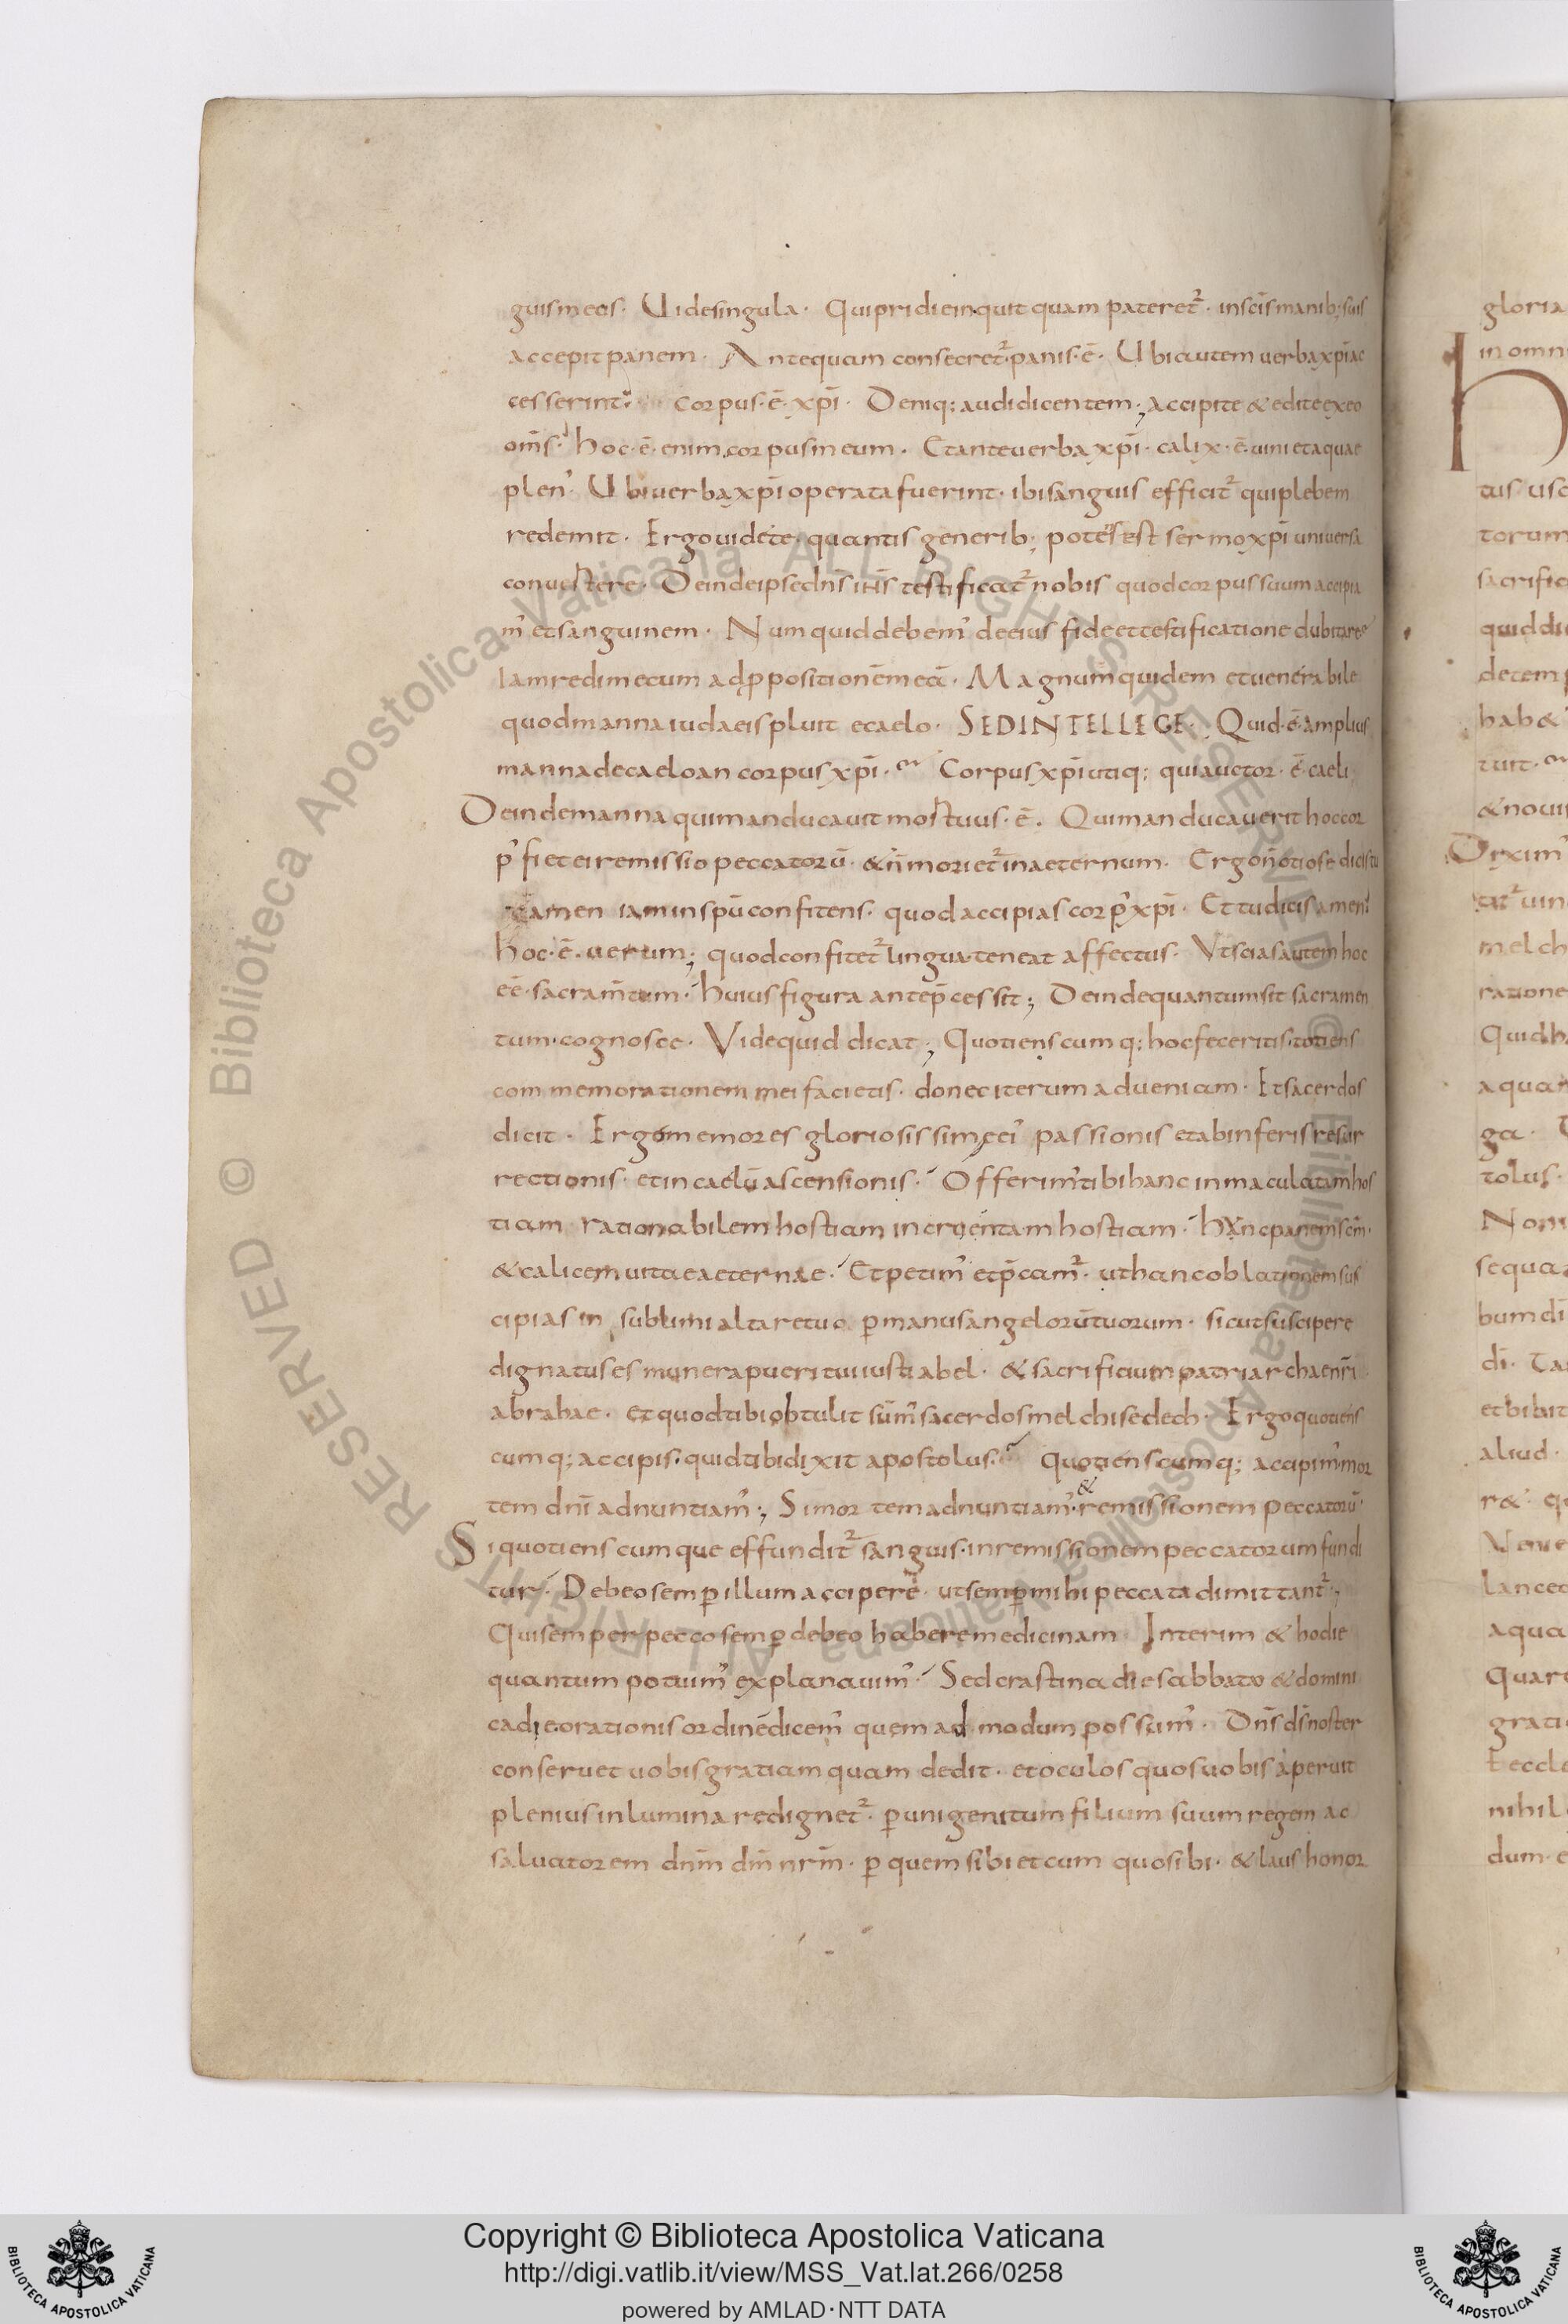 guis meos· Uide singula· Qui pridie inquit quam pateret᷑· in scīs manib; suis
accepit panem· Antequam consecret᷑· panis· ē· Ubi autem uerba xp̄i ac
cesserint· corpus· ē· xp̄i· Deniq; audi dicentem; accipite & edite ex eo
om̄s· hoc· ē· enim corpus meum· Et ante uerba xp̄i· calix· ē· uini et aquae
plen᾽· Ubi uerba xp̄i operata fuerint· ibi sanguis efficit᷑ qui plebem
redemit· Ergo uidete· quantis generib; potens est sermo xp̄i uniuersa
conuertere· Deinde ipse dn̄s ih̄s testificat᷑ nobis quod corpus suum accipia
m᾽ et sanguinem· Numquid debem᾽ de eius fide et testificatione dubitare
Iam redi mecum ad ꝓpositionē meā· Magnum quidem et uenerabile
quod manna iudaeis pluit e caelo· SED INTELLEGE· Quid· ē· amplius
manna de caelo an corpus xp̄i· Corpus xp̄i utiq; qui auctor· ē· caeli
Deinde manna qui manducauit mortuus· ē· Qui manducauerit hoc cor
p᾽ fiet ei remissio peccatorū· & n̄ moriet᷑ in aeternum· Ergo n̄ otiose dicis tu
amen iam in spū confitens· quod accipias corp᾽ xp̄i· Et tu dicis amen
hoc· ē· uerum; quod confitet᷑ lingua teneat affectus· Vt scias autem hoc
eē· sacram̄tum· huius figura ante p̄cessit; Deinde quantum sit sacramen
tum· cognosce· Vide quid dicat; Quotienscumq; hoc feceritis· totiens
commemorationem mei facietis· donec iterum adueniam· Et sacerdos
dicit· Ergo memores gloriosissimę ei᾽ passionis et ab inferis resur
rectionis· et in caelū ascensionis· Offerim᾽ tibi hanc inmaculatam hos
tiam rationabilem hostiam incruentam hostiam· hanc panem scm̄·
& calicem uitae aeternae· Et petim᾽ et p̄camur᷑· ut hanc oblationem sus
cipias in sublimi altare tuo ꝑ manus angelorū tuorum· sicut suscipere
dignatus es munera pueri tui iusti abel· & sacrificium patriarchae nr̄i
abrahae· et quod tibi obtulit sūm᾽ sacerdos melchisedech· Ergo quotiens
cumq; accipis· quid tibi dixit apostolus· Quotienscumq; accipim᾽ mor
tem dn̄i adnuntiam᾽; Si mortem adnuntiam᾽· & remissionem peccatorū·
Si quotienscumque effundit᷑ sanguis· in remissionem peccatorum fundi
tur· Debeo semꝑ illum accipere· ut semꝑ mihi peccata dimittant᷑;
Qui semper pecco semꝑ debeo habere medicinam· Interim & hodie
quantum potuim᾽ explanauim᾽· Sed crastina die sabbato & domini
ca die orationis ordinē dicem᾽ quem ad modum possum᾽· Dn̄s d̄s noster
conseruet uobis gratiam quam dedit· et oculos quos uobis aperuit
plenius inluminare dignet᷑· ꝑ unigenitum filium suum regem ac
saluatorem dn̄m dm̄ nrm̄· ꝑ quem sibi et cum quo sibi· & laus honor
gloria
in omn
tus usq
torum
sacrific
quid di
detem
hab&
tuit·
& noui
Dixim᾽
tat᷑ uin
melch
ratione
Quid h
aquam
ga·
tolus·
Non
sequa
bum dī
dī· Ta
et bibit
aliud·
r&· q
Venie
lancea
aqua
Quare
grati
nihil
dum· e
Copyright © Biblioteca Apostolica Vaticana
http://digi.vatlib.it/view/MSS_Vat.lat.266/0258
powered by AMLAD·NTT DATA
BIBLIOTECA APOSTOLICA VATICANA
BIBLIOTECA APOSTOLICA VATICANA
© Biblioteca Apostolica Vaticana ALL RIGHTS RESERVED
© Biblioteca Apostolica Vaticana ALL RIGHTS RESERVED